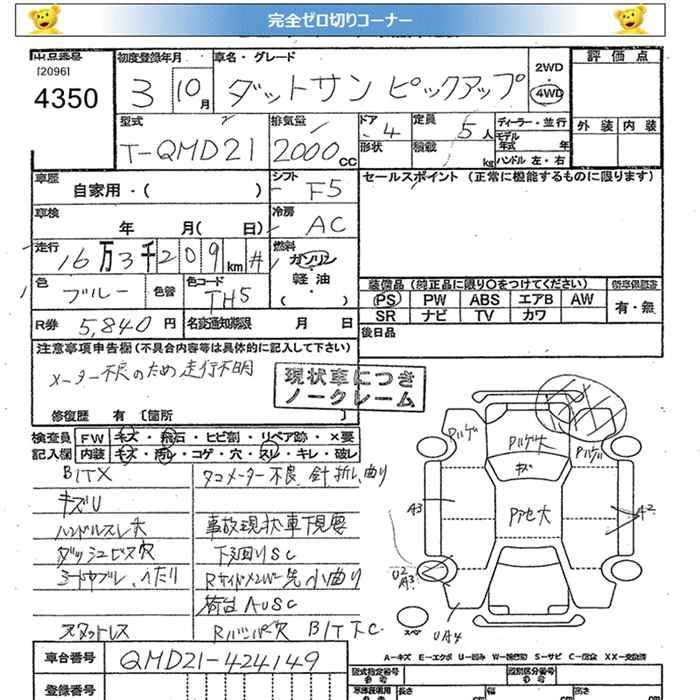 完全ゼロ切りコーナー
出品番号
[2096]
4350
初度登録年月
3 10月
車名・グレード
ダットサン ピックアップ
2WD
4WD
評価点
外装 内装
型式
T-QMD21
排気量
2000cc
ドア
4
形状
定員
5人
積載
kg
ディーラー・並行
モデル年式 年
ハンドル 左・右
車歴
自家用・( )
シフト
F5
セールスポイント (正常に機能するものに限ります)
車検
年 月( 日)
冷房
AC
走行
16万3千209km #
燃料
ガソリン
軽油
( )
色
ブルー
色替
色コード
TH5
装備品 (純正品に限り○をつけてください)
PS PW ABS エアB AW
SR ナビ TV カワ
有・無
R券 5,840円
名変通知期限 月 日
後日品
注意事項申告欄 (不具合内容等は具体的に記入して下さい)
メーター不良のため走行不明
現状車につき
ノークレーム
修復歴 有 [箇所 ]
検査員 FW キズ・飛石・ヒビ割・リペア跡・×要
記入欄 内装 キズ・汚レ・コゲ・穴・スレ・キレ・破レ
タコメーター不良 針折レ曲り
キズU
ハンドルスレ大
事故現状車下見要
ダッシュビス穴
下廻りSC
荷台AUSC
スタットレス
Rバンパー穴
Pハゲ
Pハゲ大
Pハゲ
キズ
Pアセ大
A3
A2
U2
A3
スペア
UA4
A-キズ E-エクボ U-凹み W-補修跡 S-サビ C-腐食 XX-交換済
車台番号 QMD21-424149
登録番号
型式指定番号
類別区分番号
長さ
幅
高さ
cm